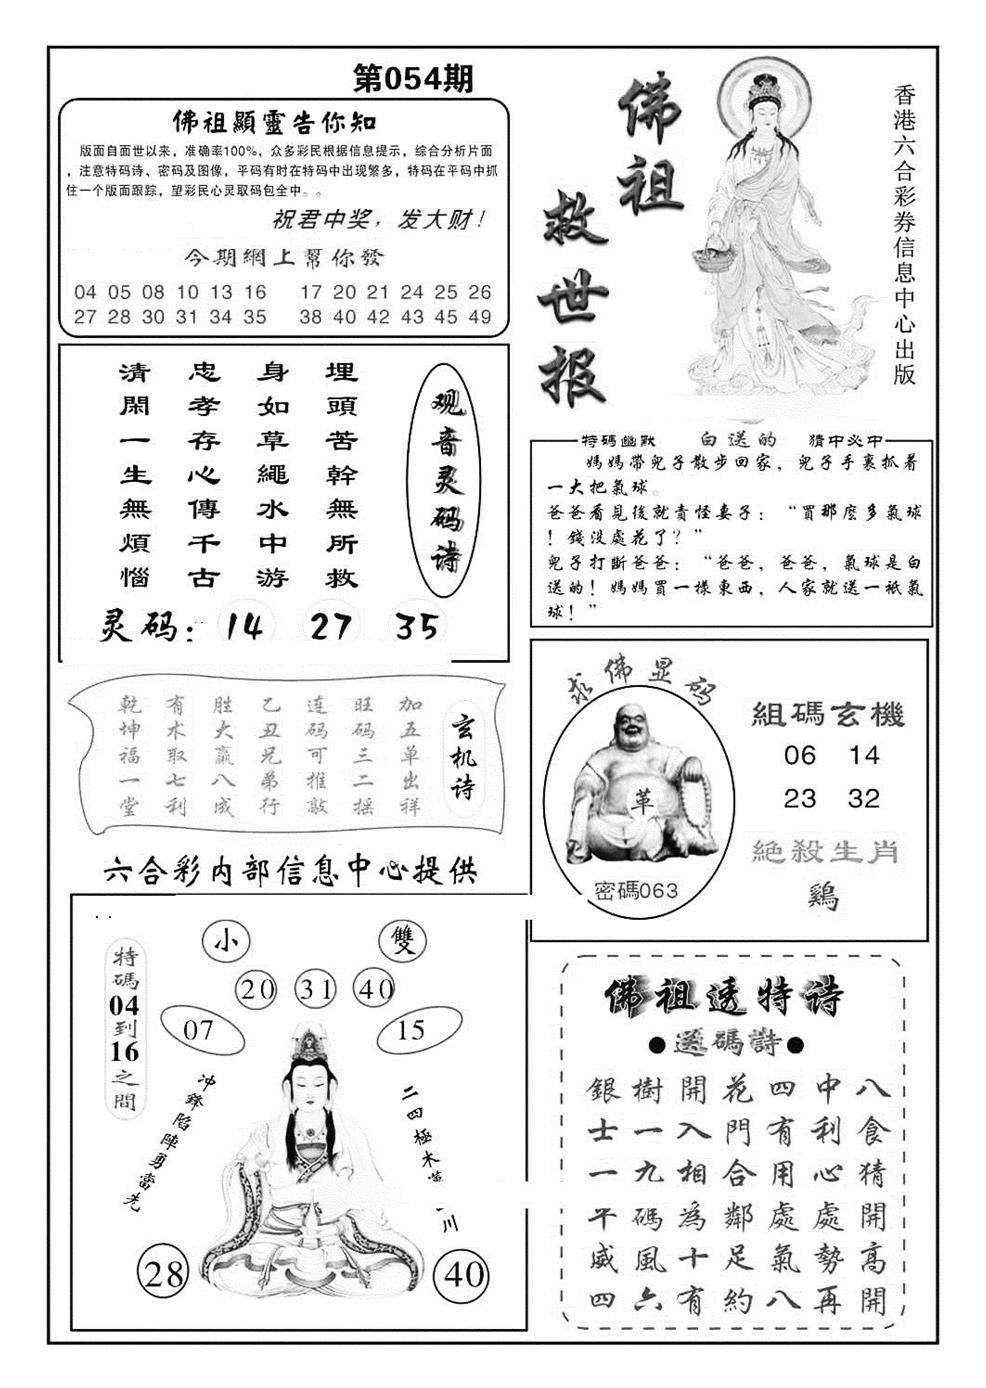 第054期
佛祖顯靈告你知
版面自面世以来，准确率100%，众多彩民根据信息提示，综合分析片面
，注意特码诗、密码及图像，平码有时在特码中出现繁多，特码在平码中抓
住一个版面跟踪，望彩民心灵取码包全中。。
祝君中奖，发大财！
今期網上幫你發
04 05 08 10 13 16 17 20 21 24 25 26
27 28 30 31 34 35 38 40 42 43 45 49
佛祖
救世报
香港六合彩券信息中心出版
观音灵码诗
埋頭苦幹無所救
身如草繩水中游
忠孝存心傳千古
清閑一生無煩惱
灵码： 14 27 35
特碼幽默 白送的 猜中必中
媽媽帶兒子散步回家，兒子手裏抓着
一大把氣球。
爸爸看見後就責怪妻子：“買那麽多氣球
！錢没處花了？”
兒子打斷爸爸：“爸爸，爸爸，氣球是白
送的！媽媽買一樣東西，人家就送一衹氣
球！”
玄机诗
加五单出祥
旺码三二摇
连码可推敲
乙丑兄弟行
胜大赢八成
有术取七利
乾坤福一堂
六合彩内部信息中心提供
求佛显码
革
密碼063
組碼玄機
06 14
23 32
絶殺生肖
鷄
特碼04到16之間
小 雙
20 31 40
07 15
冲鋒陷陣勇當先
二四極木
川
28 40
佛祖透特诗
●送碼詩●
銀樹開花四中八
士一入門有利食
一九相合用心猜
平碼為鄰處處開
威風十足氣勢高
四六有約八再開